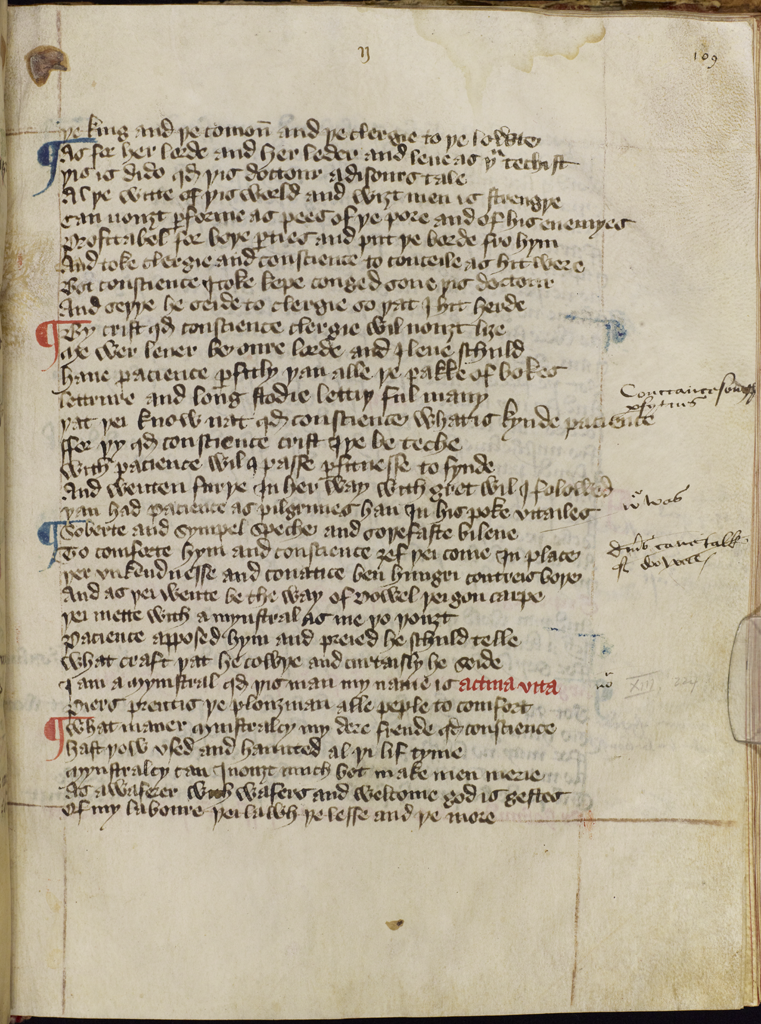 ij
109
þe king and þe comoñ and þe clergie to þe lowte
¶ As for her lorde and her leder and leue as þu techist
þis is dido qd þis doctour a disours tale
Al þe witte of þis world and wiȝt men is strengþe
Can nouȝt pforme as pees of þe pore and of his enemyes
Profitabel for boþe pties and put þe borde fro hym
And toke clergie and conscience to conceile as hit were
Bot conscience I toke kepe conged sone þis doctour
And seþþe he seide to clergie so þat I hit herde
¶ By crist qd conscience clergie wil nouȝt lize
Me wer leuer be oure lorde and I leue schuld
haue pacience pfitly þan alle þe pakke of bokes
lettrure and long stodie lettiþ ful many
þat þei know nat qd conscience what is kynde pacience
ffor þy qd conscience crist I þe be teche
With pacience wil I passe pfitnesse to fynde
And wenten furþe In her way with gret wil I folowed
þan had pacience as pilgrimes han In his poke vitailes
¶ Soberte and Sympel speche and soþefaste bileue
To comforte hym and conscience ȝef þei come In place
þer vnkendnesse and couatice ben hungri contreis boþe
And as þei wente be the way of dowel þei gon carpe
þei mette with a mynstral as me þo þouȝt
Pacience apposed hym and preied he schuld telle
What craft þat he cowþe and curtaisly he seide
I am a mynstral qd þis man my name is actiua vita
Piers prentis þe plouȝman alle peple to comfort
¶ What maner mynstralcy my dere frende qd conscience
hast þow vsed and haunted al þi lif tyme
Mynstralcy can I nouȝt much bot make men merie
As a waferer with wafers and welcome god is gestes
Of my laboure þei lawh þe lesse and þe more